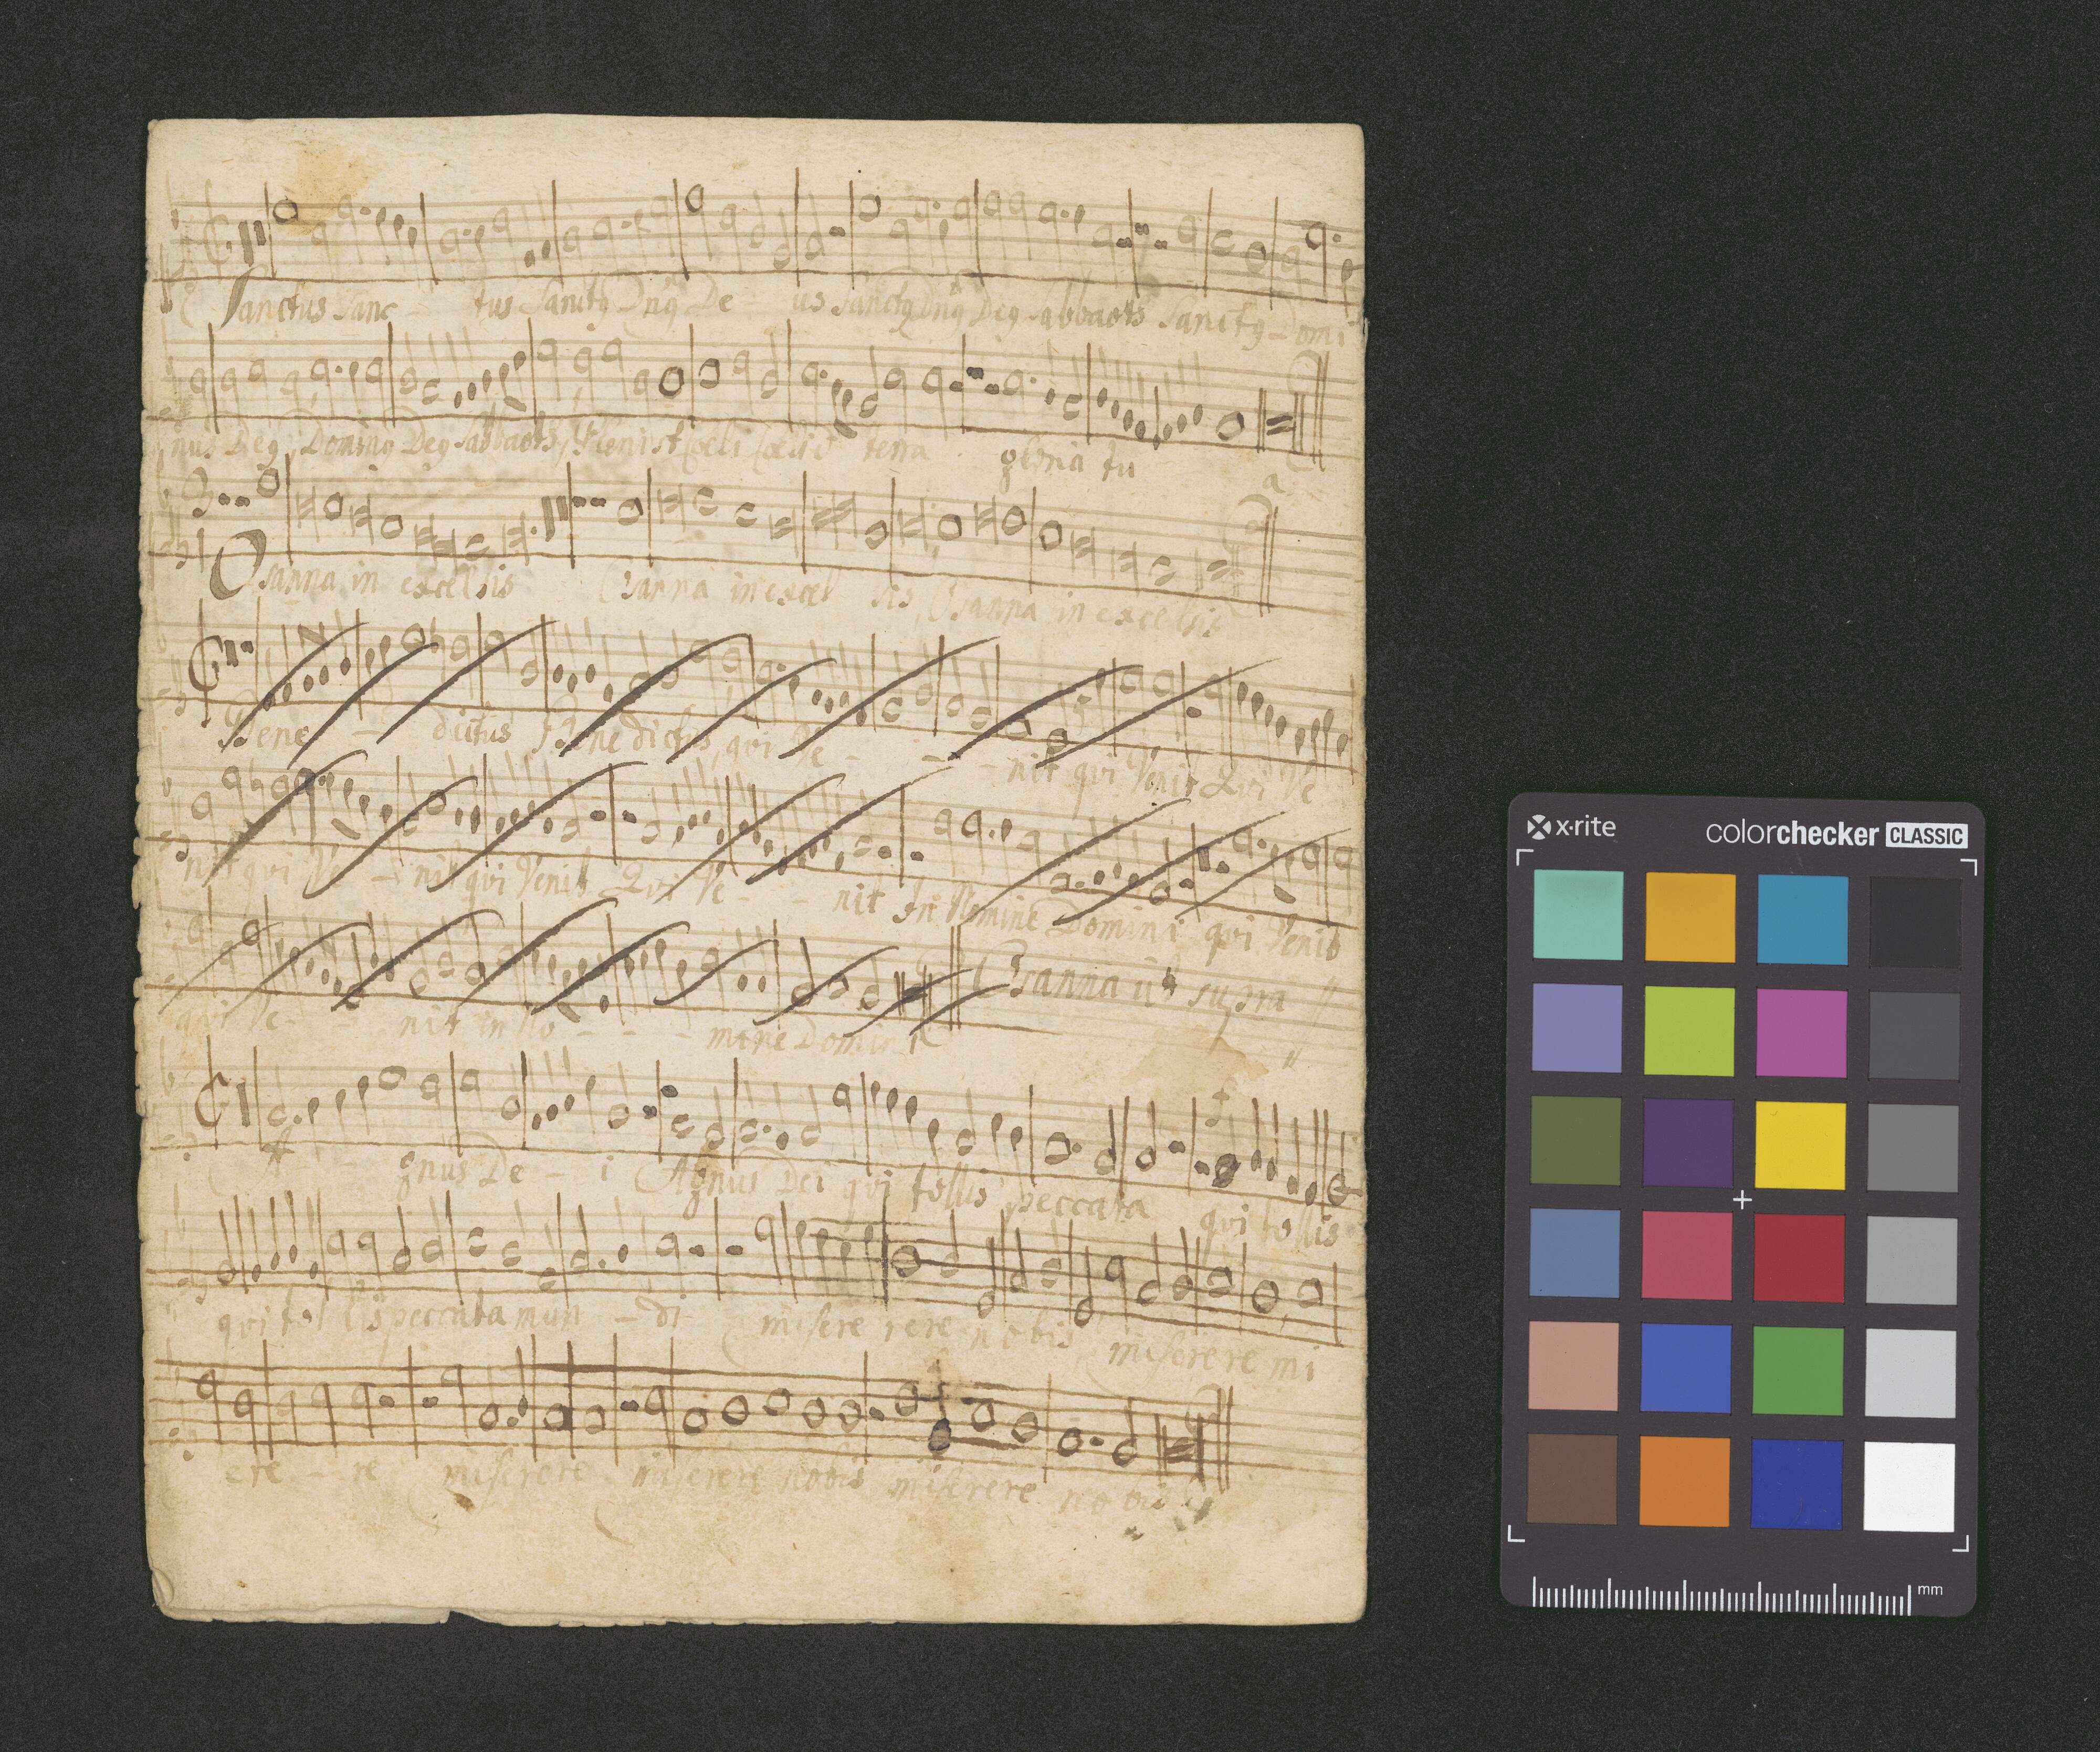 Sanctus Sanc - tus Sanctꝰ Dnꝰ De - us Sanctꝰ Dnꝰ Deꝰ Sabbaoth Sanctꝰ - Domi
nus Deꝰ, Dominꝰ Deꝰ Sabbaoth, Pleni st Coeli Coeli et terra gloria tu a
Osanna in excelsis Osanna in excel sis, Osanna in excelsis
Bene - dictus Benedictꝰ, qui Ve - - - nit qui Venit Qui Ve
nit qui Ve - nit qui Venit Qui Ve - - nit In Nomine Domini qui Venit
qui Ve - nit in No - - - mine Domini Osanna ut supra //
A - - gnus De - i Agnus Dei qui tollis peccata qui tollis
qui tol lis peccata mun - di misere rere nobis, miserere mi
ere - re miserere miserere nobis miserere nobis
x·rite colorchecker CLASSIC
mm